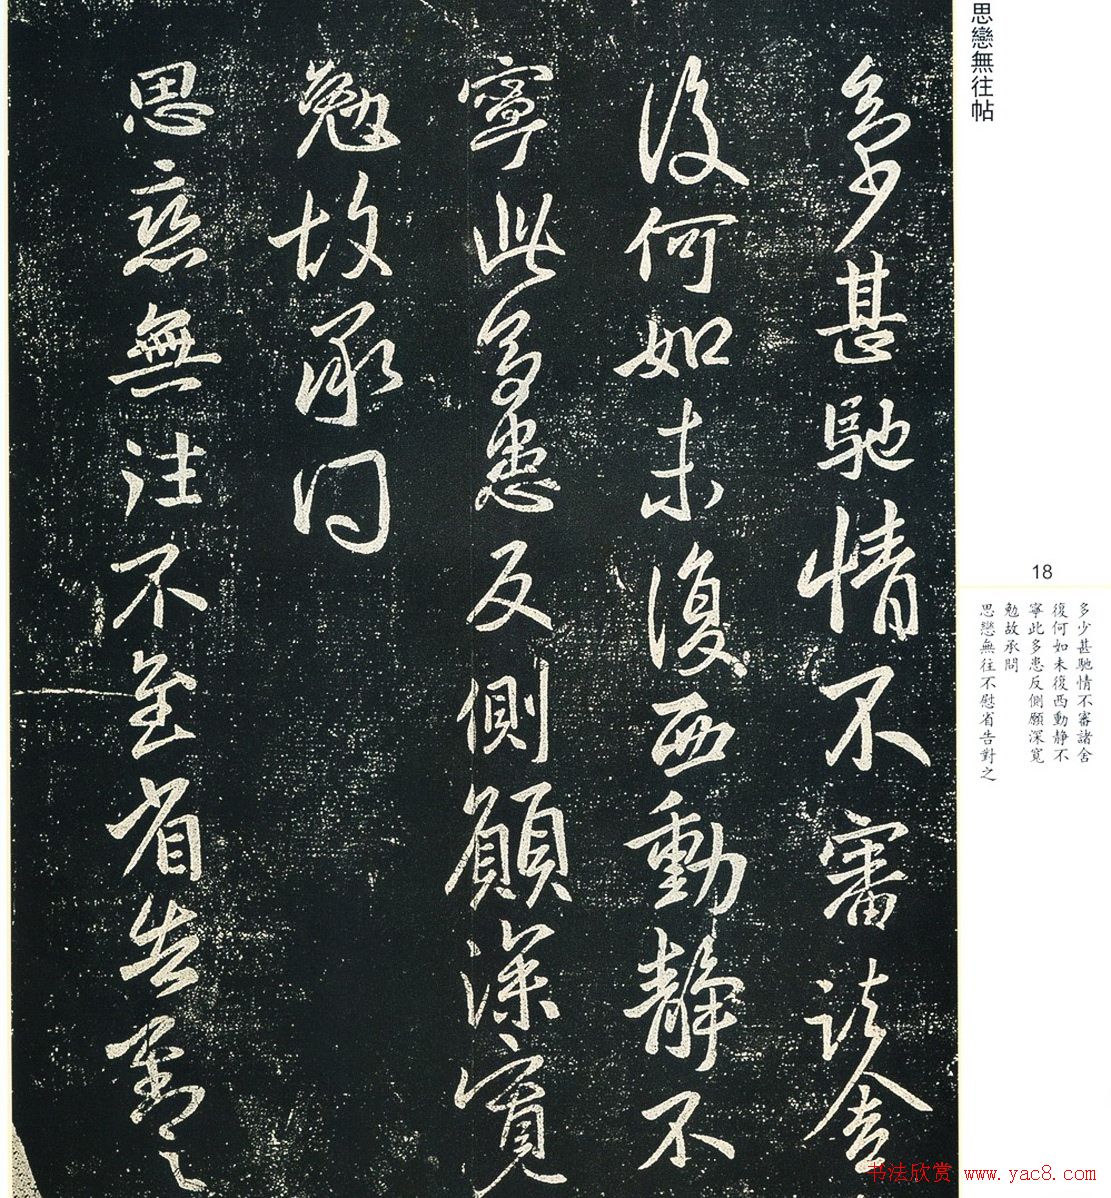 思戀無往帖
多少甚馳情不審諸舍
復何如未復西動靜不
寧此多患反側願深寬
勉故承問
思戀無往不至省告對之
18
多少甚馳情不審諸舍
復何如未復西動靜不
寧此多患反側願深寬
勉故承問
思戀無往不慰省告對之
书法欣赏 www.yac8.com